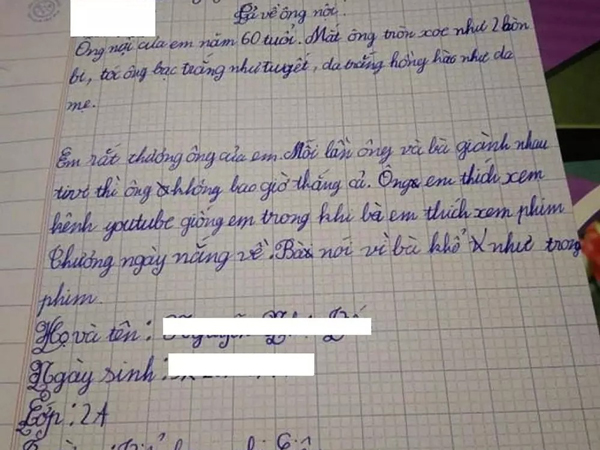 Tả về ông nội.
Ông nội của em năm 60 tuổi. Mắt ông tròn xoe như 2 hòn
bi, tóc ông bạc trắng như tuyết, da trắng hồng hào như da
mẹ.
Em rất thương ông của em. Mỗi lần ông và bà giành nhau
tivi thì ông không bao giờ thắng cả. Ông em thích xem
kênh youtube giống em trong khi bà em thích xem phim
Thương ngày nắng về. Bà nói vì bà khổ như trong
phim.
Họ và tên:
Ngày sinh:
Lớp: 2A